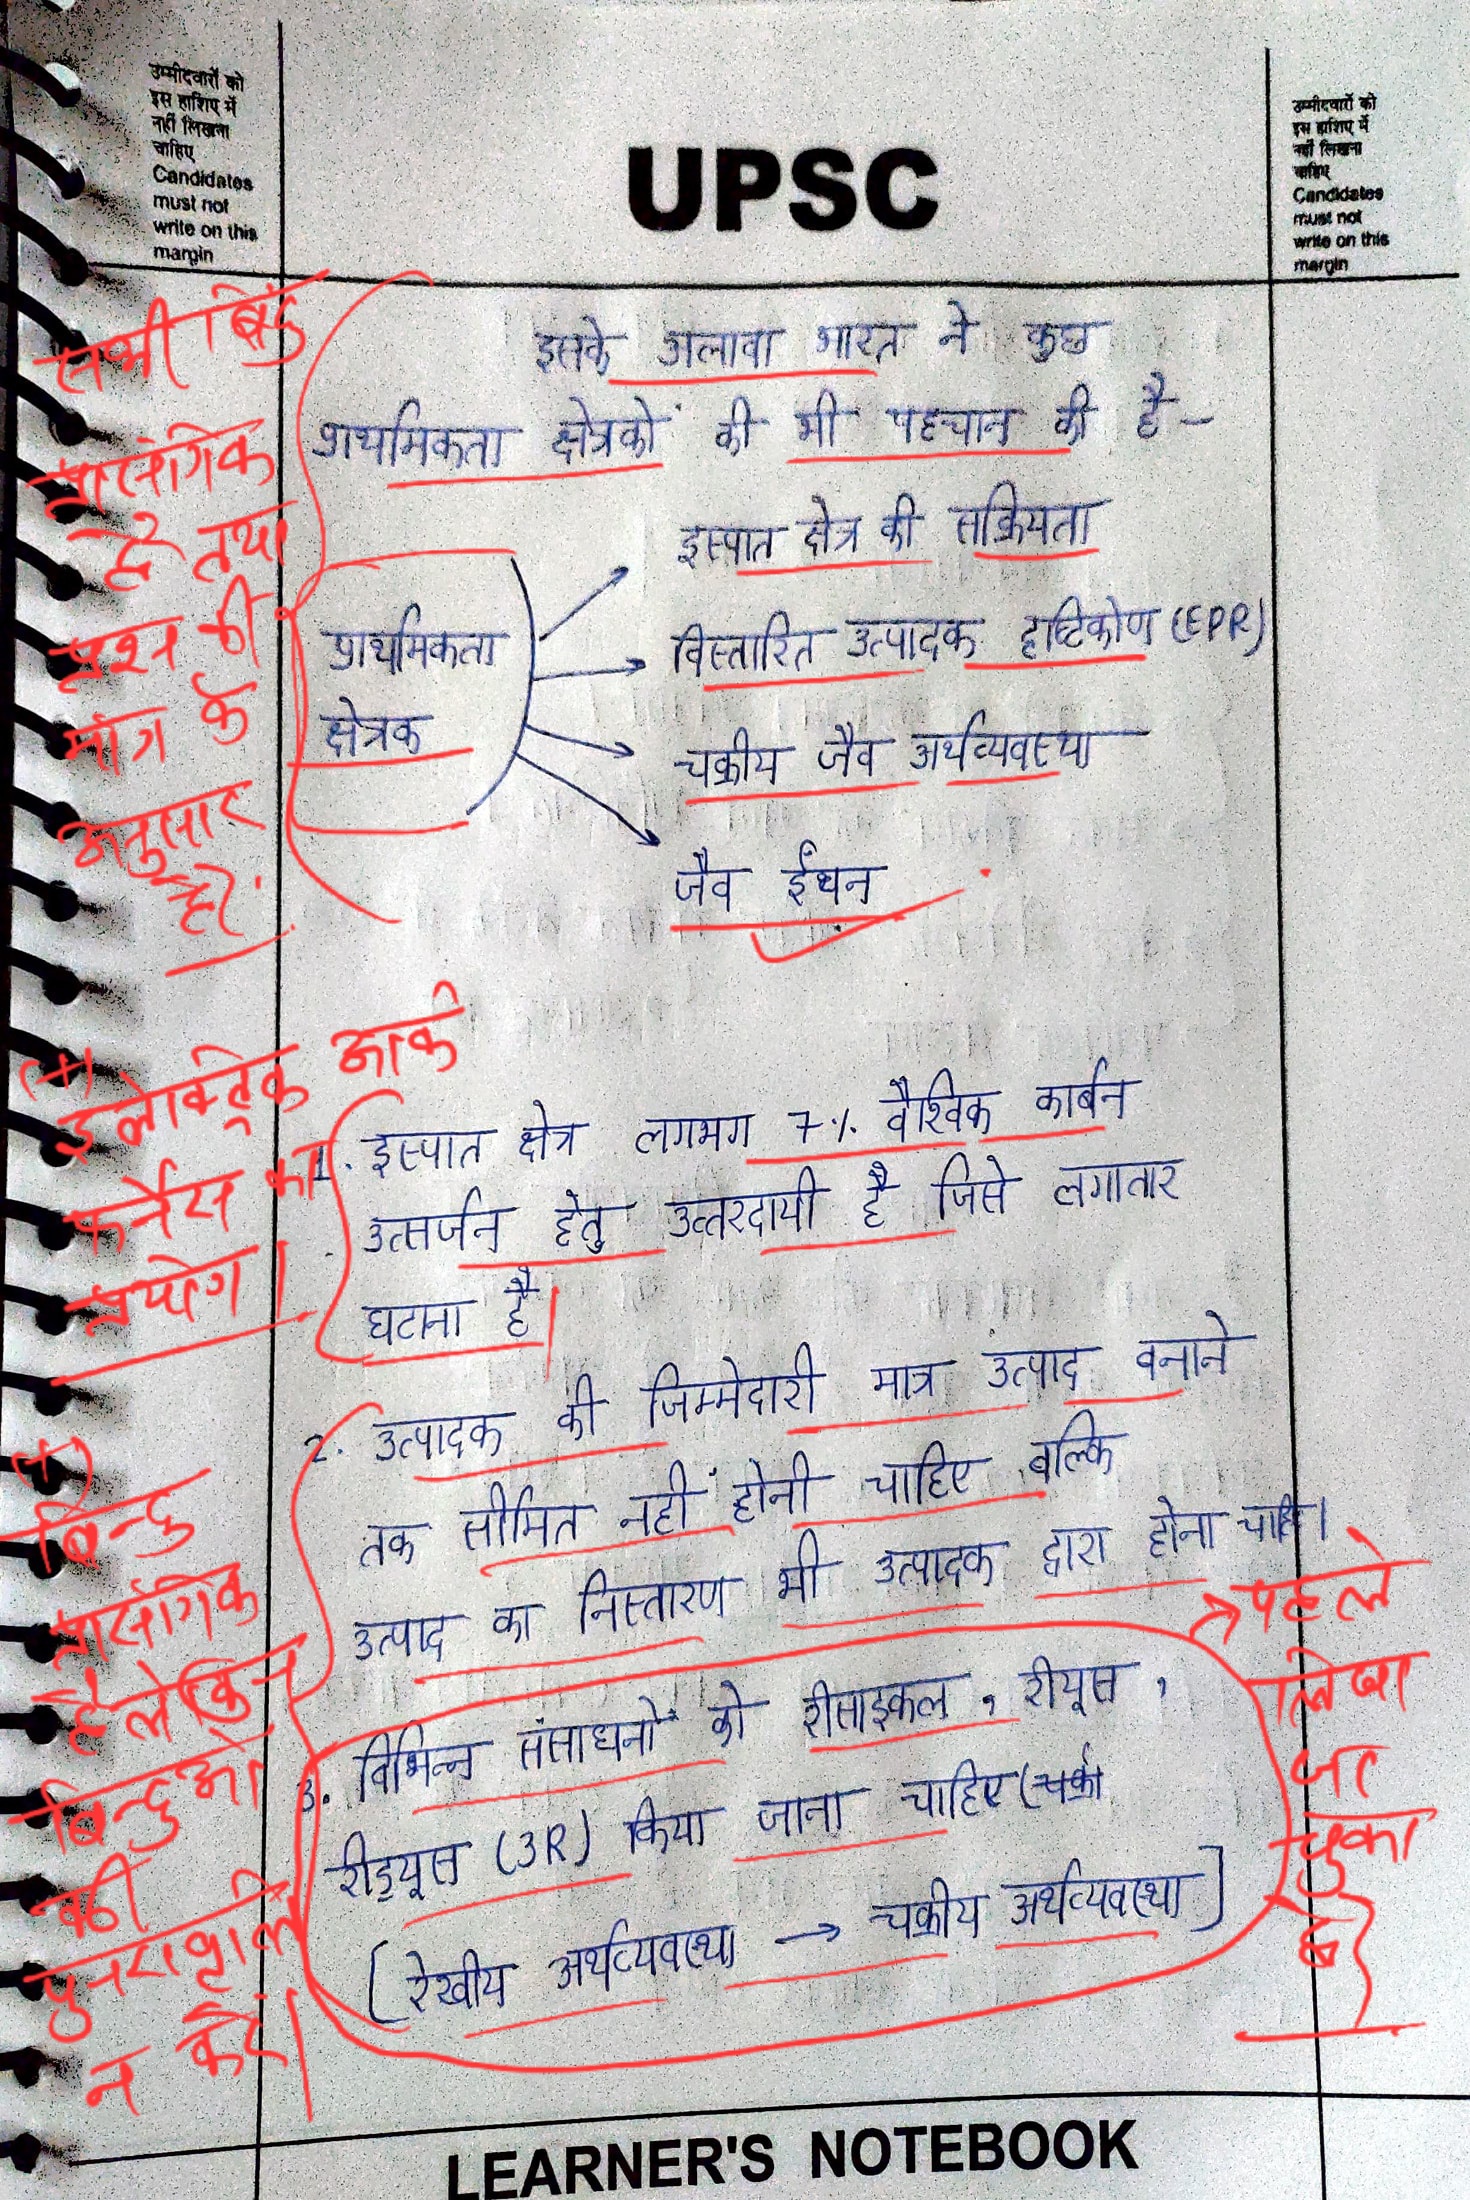 उम्मीदवारों को
इस हाशिए में
नहीं लिखना
चाहिए
Candidates
must not
write on this
margin
UPSC
उम्मीदवारों को
इस हाशिए में
नहीं लिखना
चाहिए
Candidates
must not
write on this
margin
इसके अलावा भारत ने कुछ
प्राथमिकता क्षेत्रकों की भी पहचान की है -
इस्पात क्षेत्र की सक्रियता
विस्तारित उत्पादक दृष्टिकोण (EPR)
प्राथमिकता
क्षेत्रक
चक्रीय जैव अर्थव्यवस्था
जैव ईंधन
सभी बिंदु
प्रासंगिक
है तथा
प्रश्न की
मांग के
अनुसार
है।
(+)
इलेक्ट्रिक आर्क
फर्नेस का
प्रयोग।
1. इस्पात क्षेत्र लगभग 7% वैश्विक कार्बन
उत्सर्जन हेतु उत्तरदायी है जिसे लगातार
घटाना है।
2. उत्पादक की जिम्मेदारी मात्र उत्पाद बनाने
तक सीमित नहीं होनी चाहिए बल्कि
उत्पाद का निस्तारण भी उत्पादक द्वारा होना चाहि।
3. विभिन्न संसाधनों को रीसाइकल, रीयूस,
रीड्यूस (3R) किया जाना चाहिए
[रेखीय अर्थव्यवस्था → चक्रीय अर्थव्यवस्था]
(+)
बिन्दु
प्रासंगिक
है लेकिन
बिन्दुओं
की
पुनरावृत्ति
न करें।
→ पहले
लिखा
जा
चुका
है।
LEARNER'S NOTEBOOK